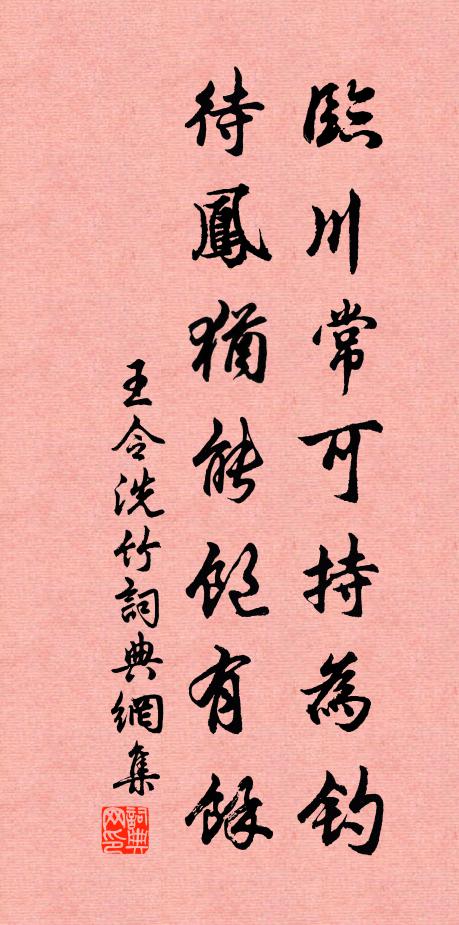 臨川常可持為釣
待鳳猶能飽有餘
王令洗竹詞典網集
詞典网印